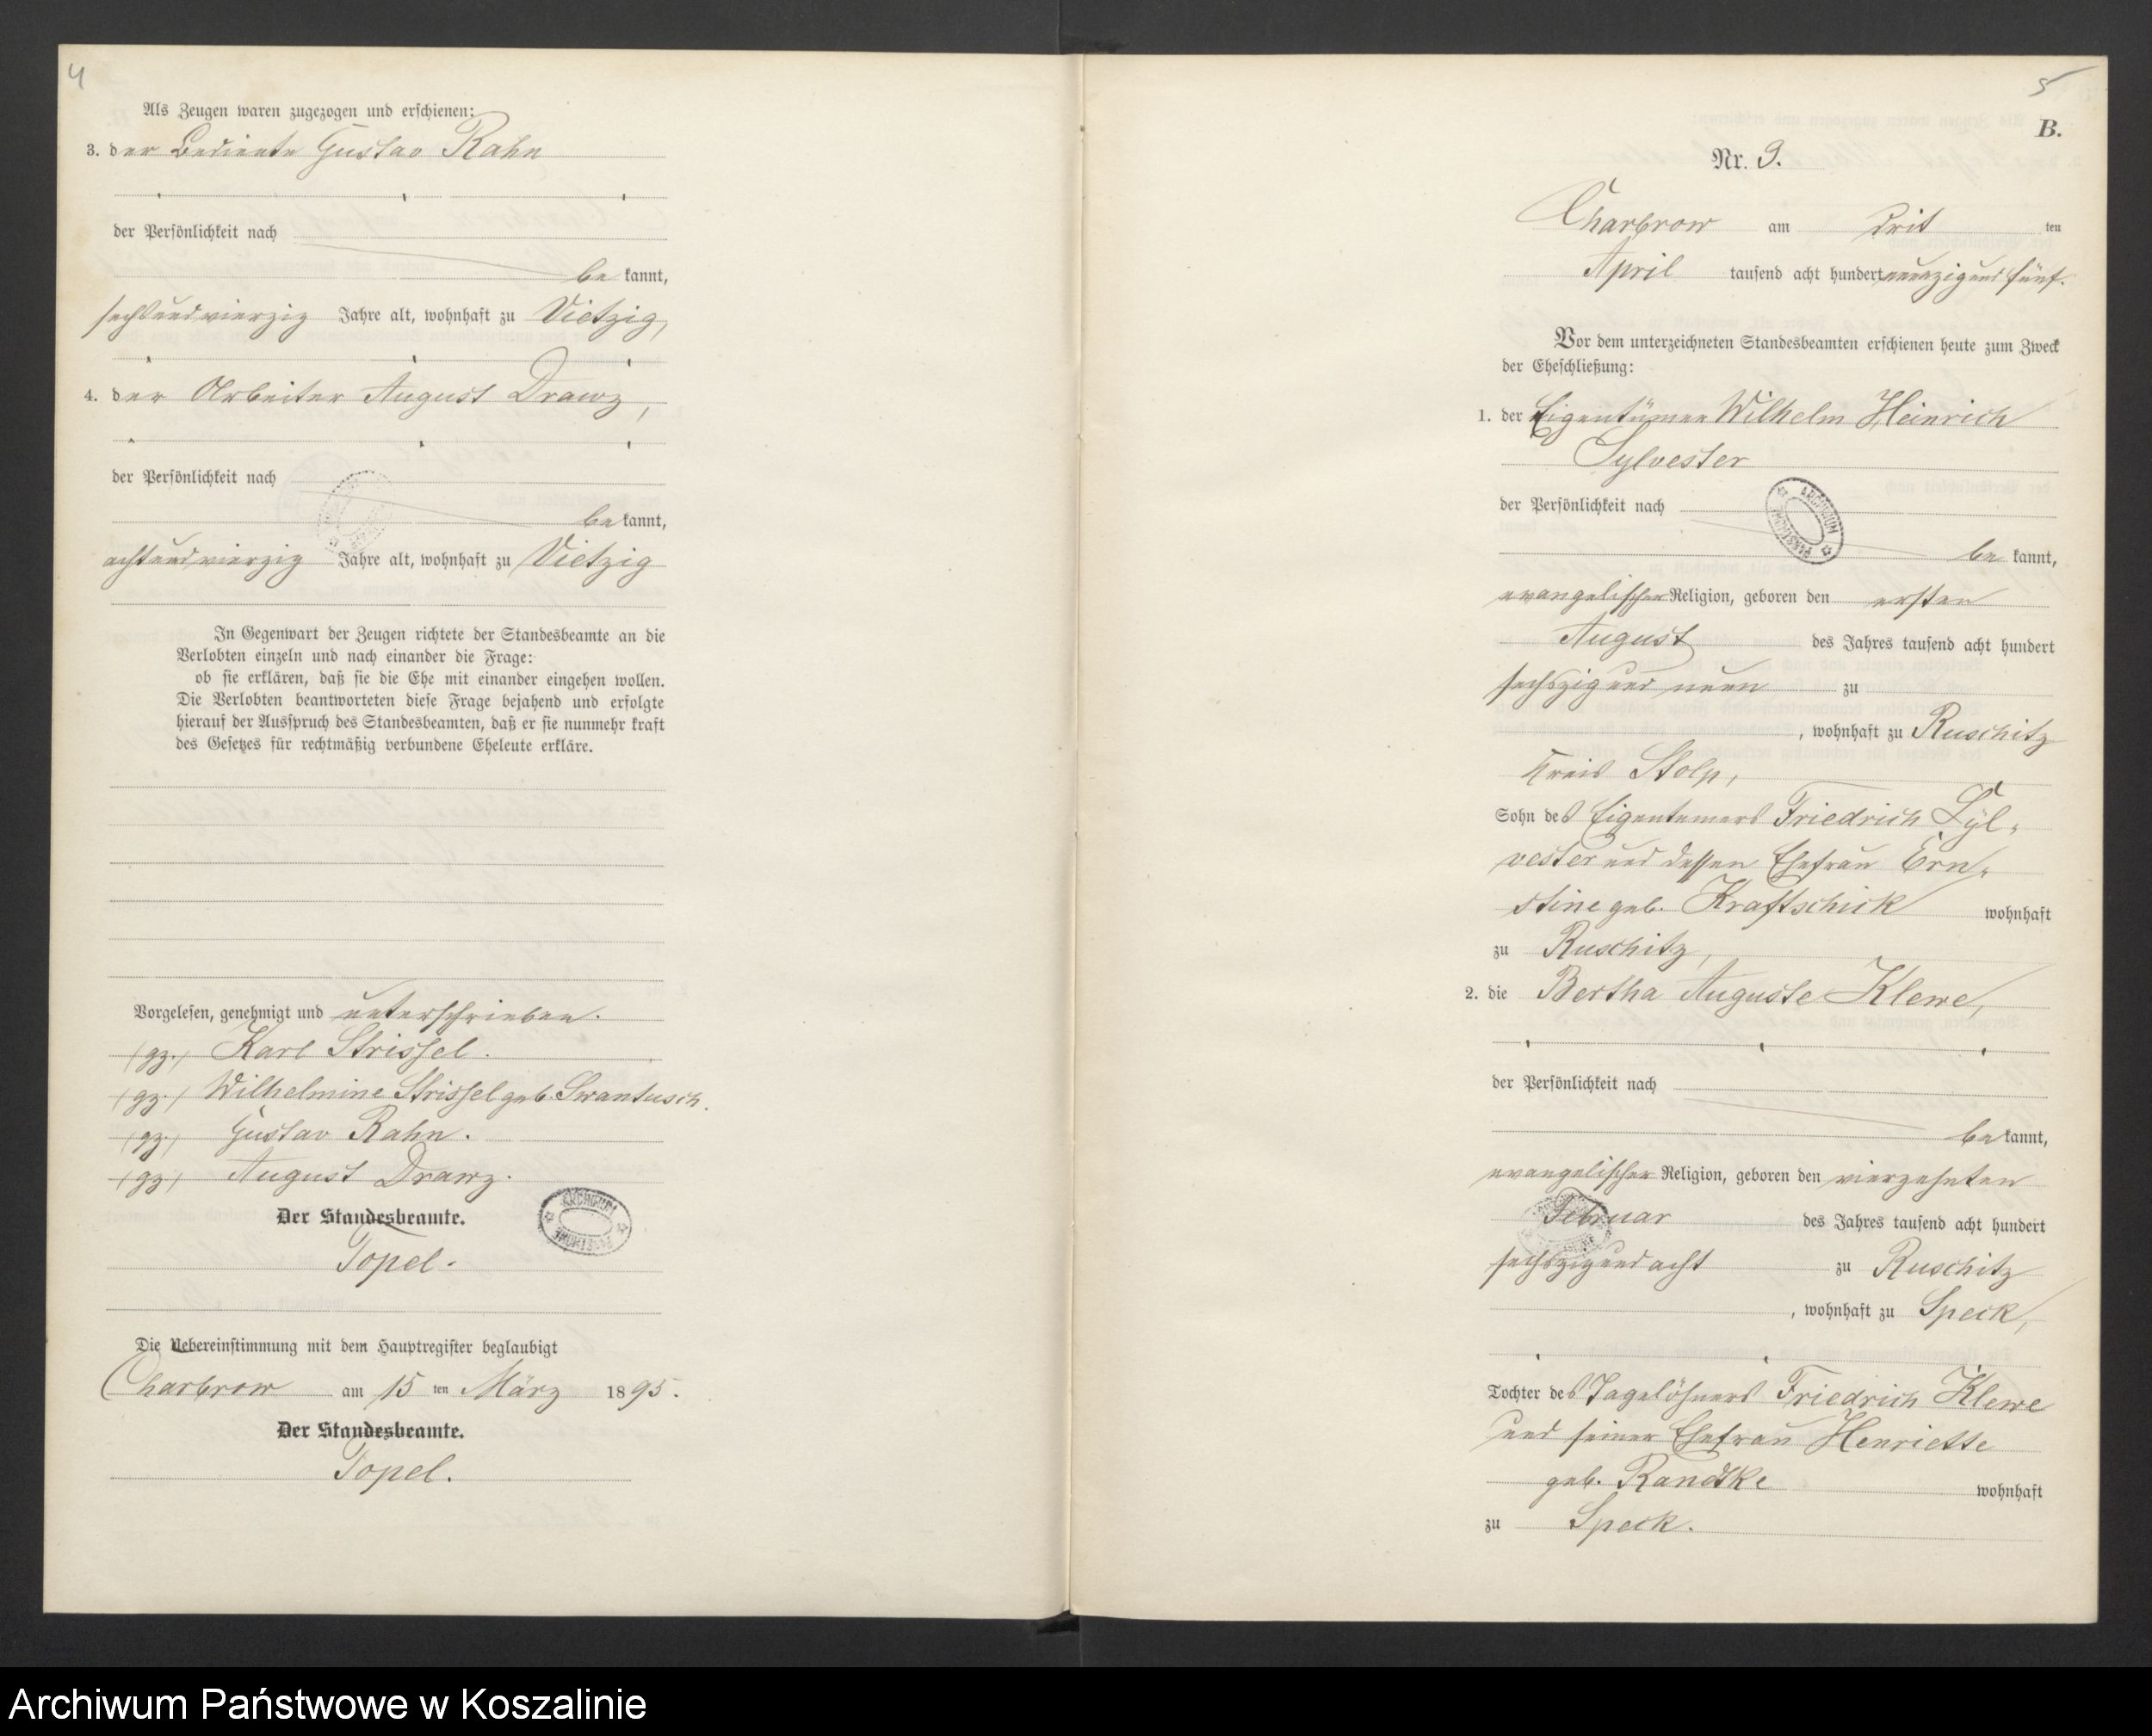 4
Als Zeugen waren zugezogen und erschienen:
3. der Bediente Gustav Rahn
der Persönlichkeit nach
be kannt,
sechsundvierzig Jahre alt, wohnhaft zu Vietzig,
4. der Arbeiter August Drawz,
der Persönlichkeit nach
be kannt,
achtundvierzig Jahre alt, wohnhaft zu Vietzig
In Gegenwart der Zeugen richtete der Standesbeamte an die
Verlobten einzeln und nach einander die Frage:
ob sie erklären, daß sie die Ehe mit einander eingehen wollen.
Die Verlobten beantworteten diese Frage bejahend und erfolgte
hierauf der Ausspruch des Standesbeamten, daß er sie nunmehr kraft
des Gesetzes für rechtmäßig verbundene Eheleute erkläre.
Vorgelesen, genehmigt und unterschrieben.
(gz.) Karl Strissel.
(gz.) Wilhelmine Strissel geb. Swantusch.
(gz.) Gustav Rahn.
(gz) August Drawz.
Der Standesbeamte.
Topel.
ARCHIWUM PAŃSTWOWE
Die Uebereinstimmung mit dem Hauptregister beglaubigt
Charbrow am 15 ten März 1895.
Der Standesbeamte.
Topel.
5
B.
Nr. 9.
Charbrow am drit ten
April tausend acht hundert neunzig und fünf.
Vor dem unterzeichneten Standesbeamten erschienen heute zum Zweck
der Eheschließung:
1. der Eigentümer Wilhelm Heinrich
Sylvester
der Persönlichkeit nach
ARCHIWUM PAŃSTWOWE
be kannt,
evangelischer Religion, geboren den ersten
August des Jahres tausend acht hundert
sechszig und neun zu
, wohnhaft zu Ruschitz
Kreis Stolp,
Sohn des Eigentümers Friedrich Syl-
vester und dessen Ehefrau Ern-
stine geb. Kraftschick wohnhaft
zu Ruschitz,
2. die Bertha Auguste Klewe,
der Persönlichkeit nach
be kannt,
evangelischer Religion, geboren den vierzehnten
Februar des Jahres tausend acht hundert
sechszig und acht zu Ruschitz
, wohnhaft zu Speck,
Tochter des Tagelöhners Friedrich Klewe
und seiner Ehefrau Henriette
geb. Randtke wohnhaft
zu Speck.
Archiwum Państwowe w Koszalinie